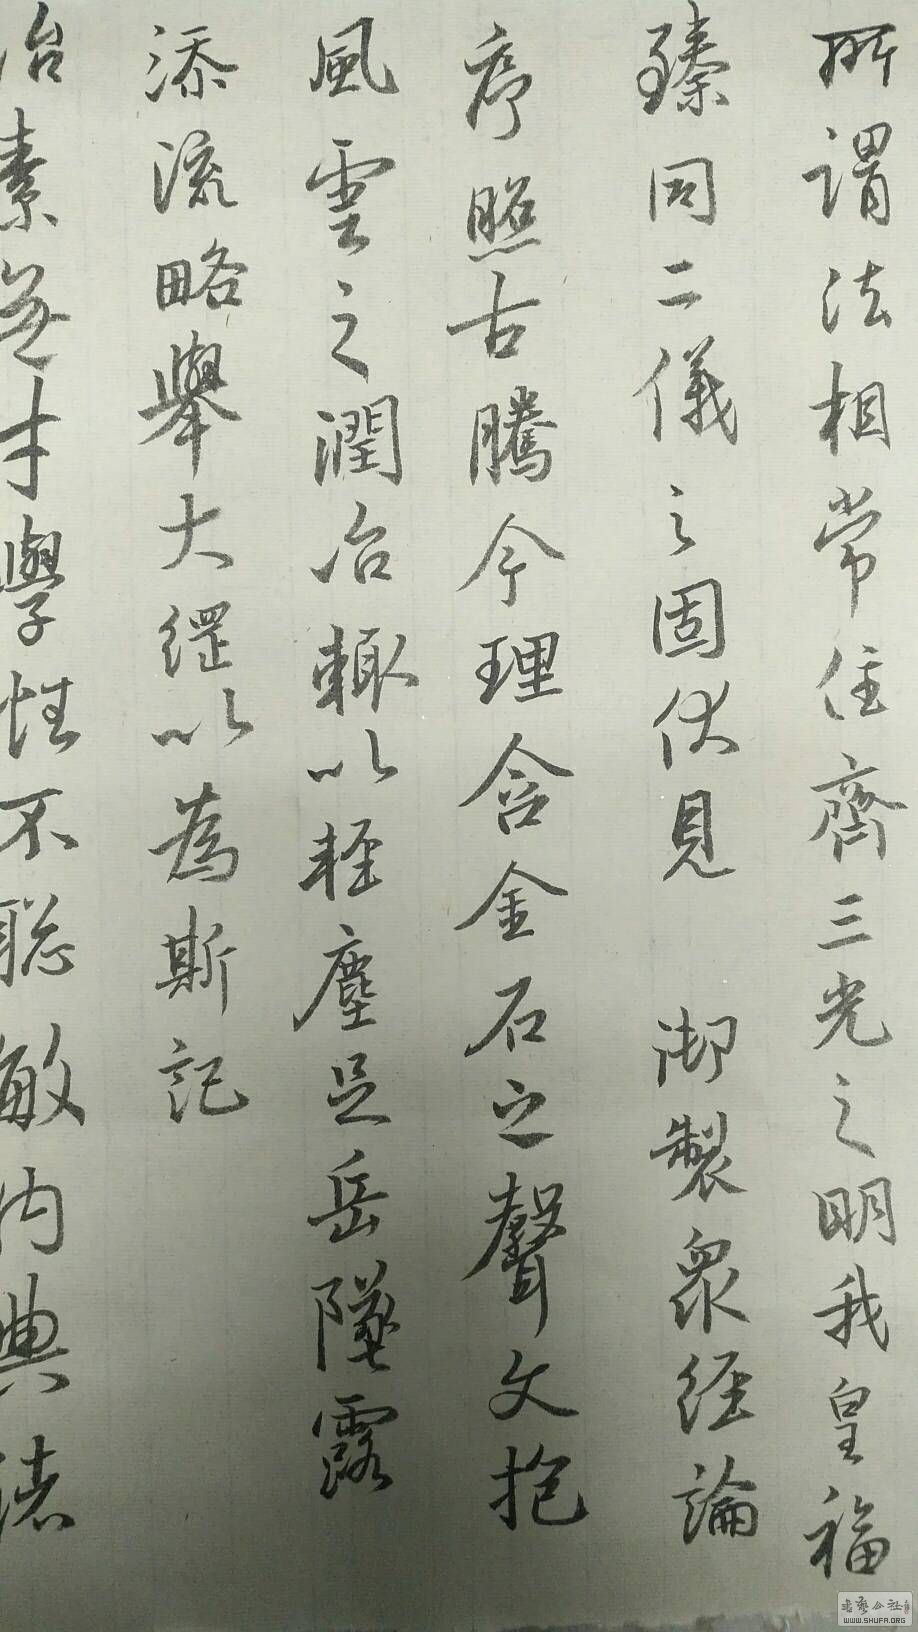 所謂法相常住齊三光之明我皇福
臻同二儀之固伏見 御製衆經論
序照古騰今理含金石之聲文抱
風雲之潤治輙以輕塵足岳墜露
添流略舉大綱以為斯記
治素無才學性不聡敏内典諸
WWW.SHUFA.ORG